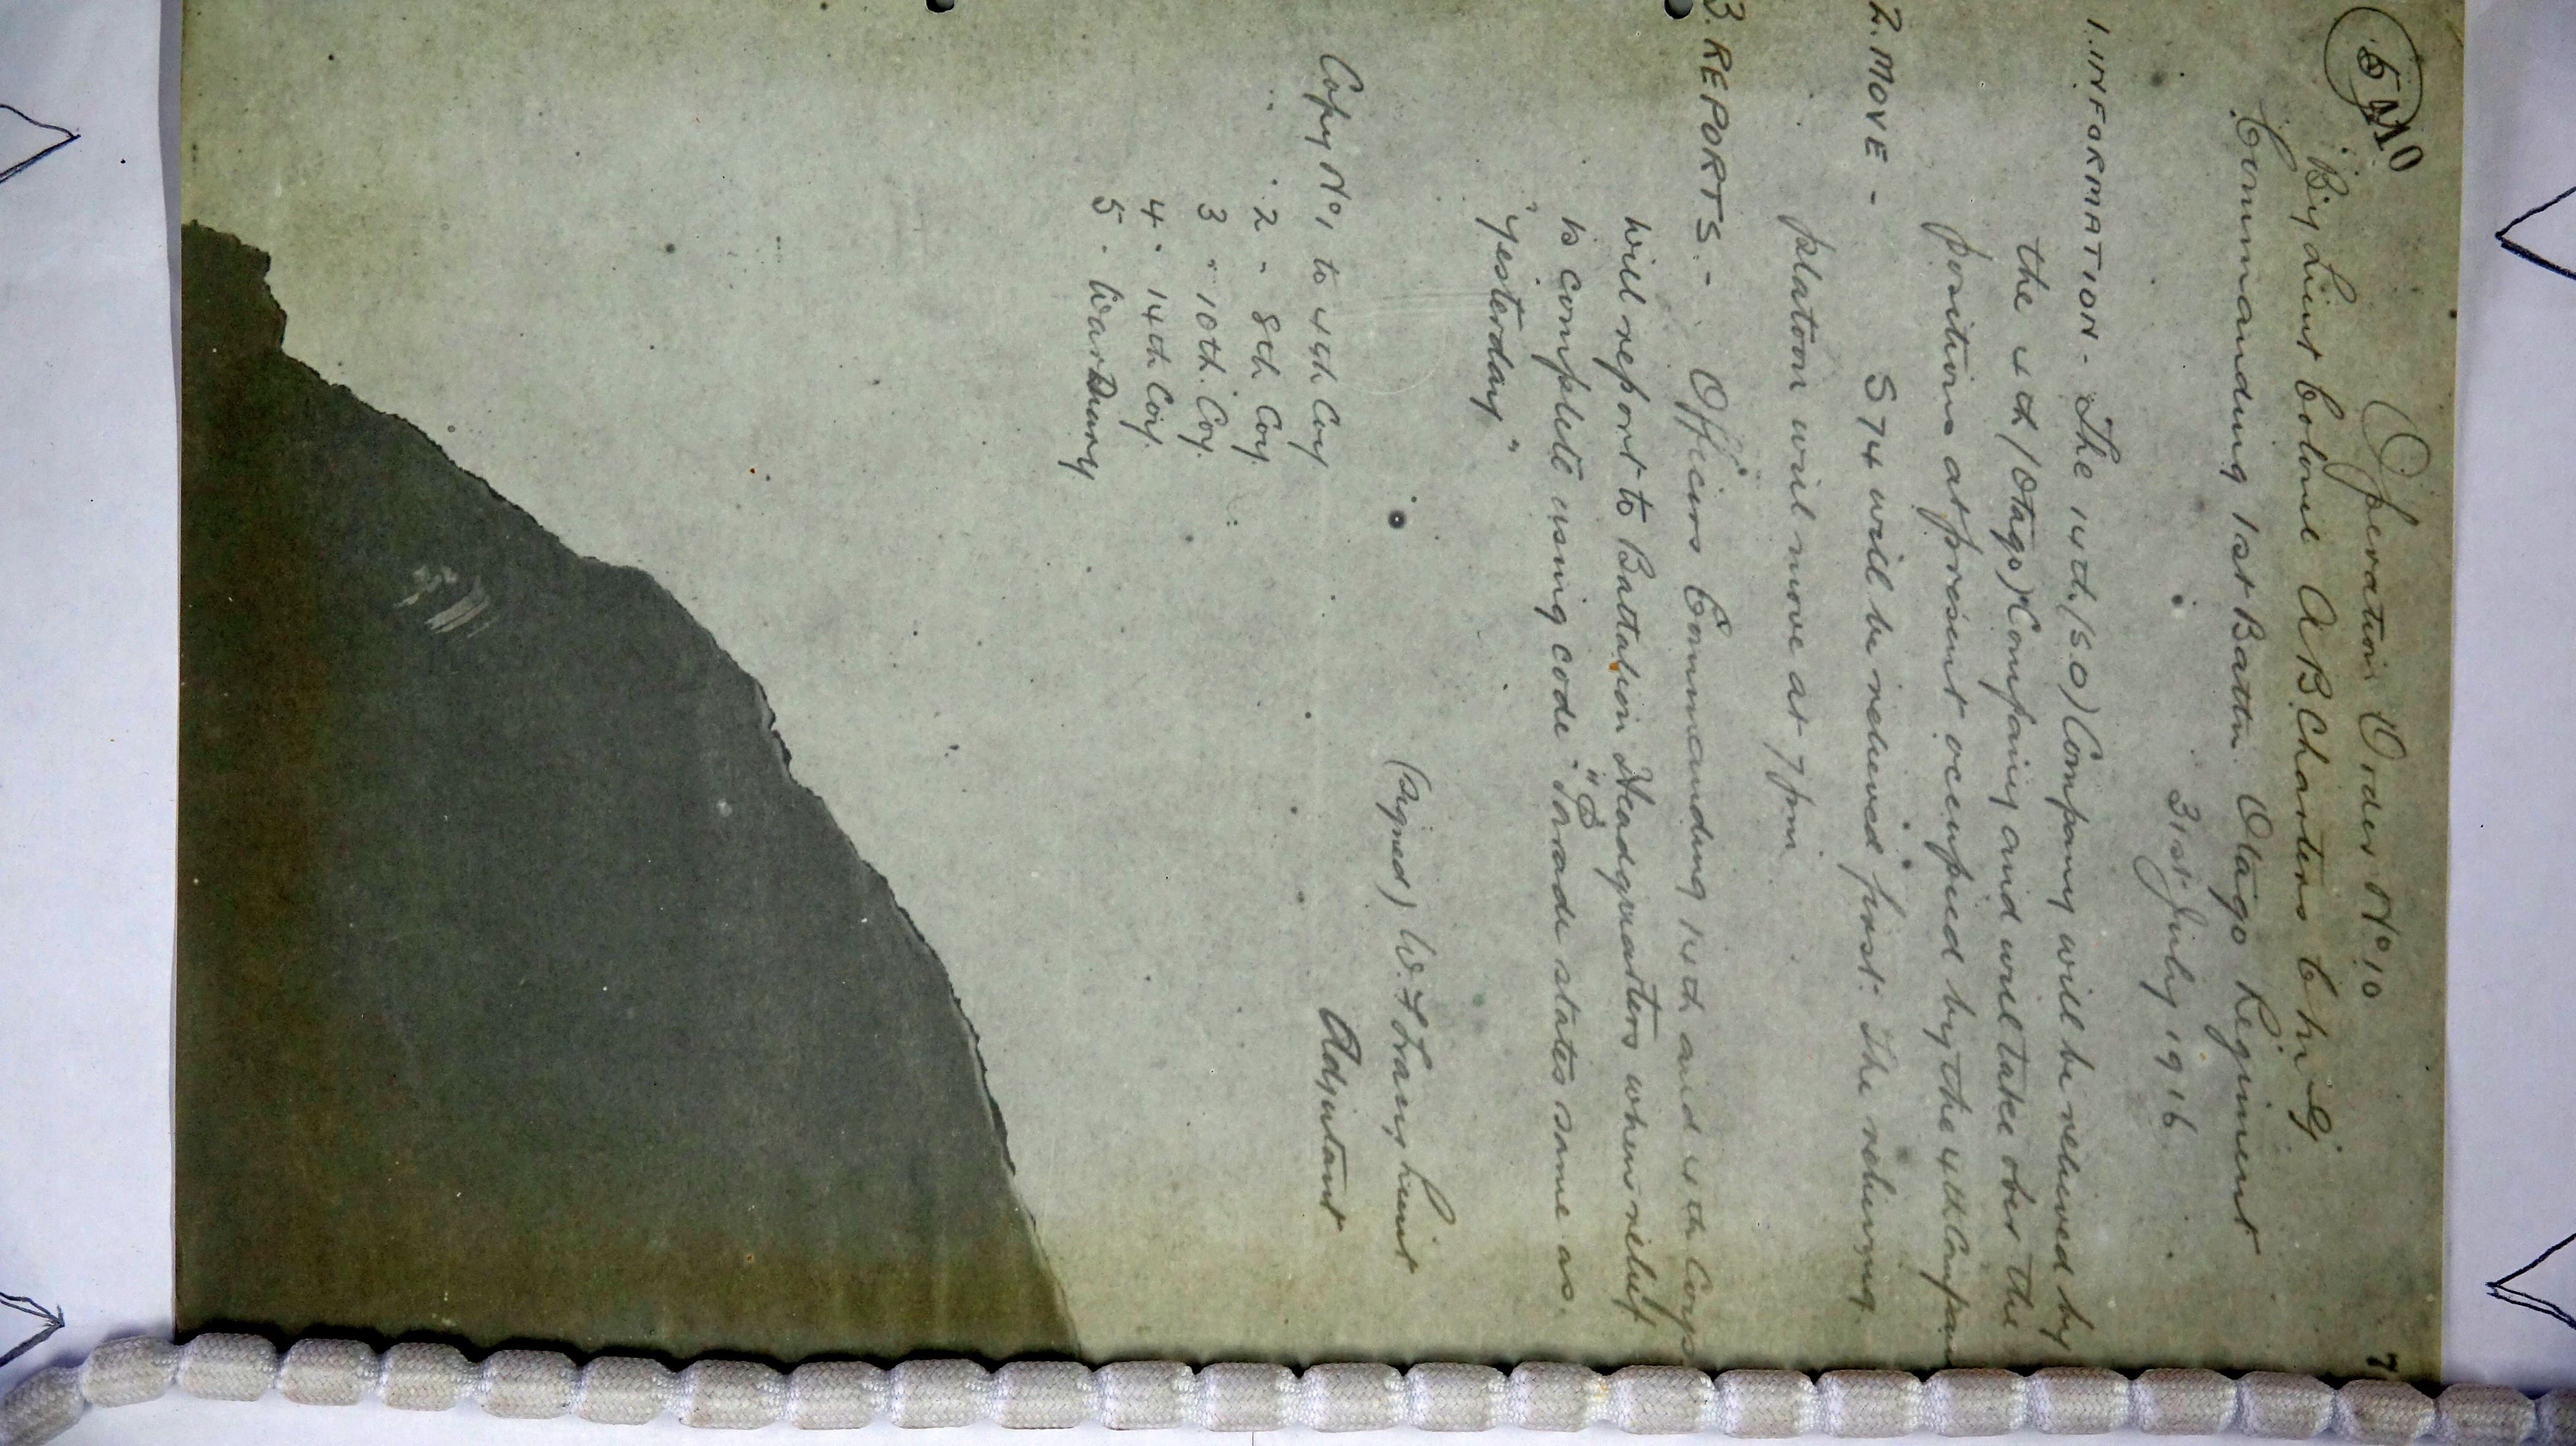 Operation Order No 10
By Lieut Colonel A B Charters C M G
Commanding 1st Battn Otago Regiment
31st July 1916
1. INFORMATION - The 14th (S.O) Company will be relieved by
the 4th (Otago) Company and will take over the
positions at present occupied by the 4th Company
2. MOVE - S 74 will be relieved first. The relieving
platoon will move at 7 pm
3. REPORTS - Officers Commanding 14th and 4th Coys
will report to Battalion Headquarters when relief
is complete using code "B" Parade states same as
"yesterday"
(signed) W. F Lieut
Adjutant
Copy No 1 to 4th Coy
" 2 - 8th Coy
3 " 10th. Coy.
4 " 14th Coy.
5 - War Diary
7